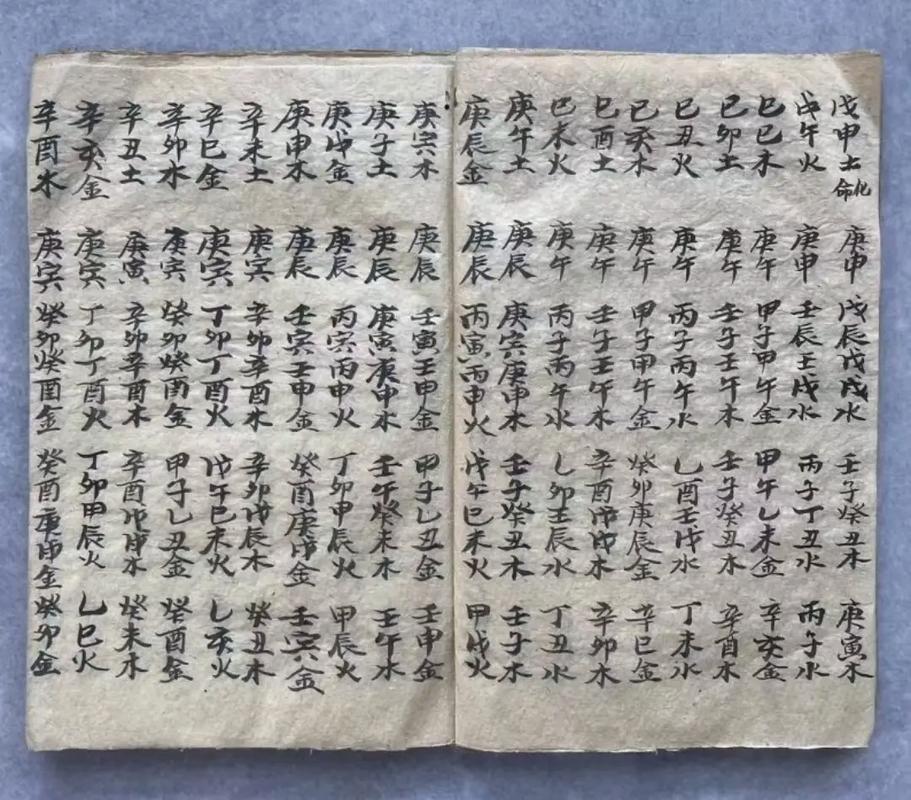 戊申土化命 庚申 戊辰戊戌木 壬子癸丑木 庚寅木
戊午火 庚申 壬辰壬戌水 丙子丁丑水 丙子水
己巳木 庚午 甲子甲午金 甲午乙未金 辛亥金
己卯土 庚午 壬子壬午木 壬子癸丑木 辛酉木
己丑火 庚午 丙子丙午水 乙酉壬戌水 丁未水
己亥木 庚午 甲子甲午金 癸卯庚辰金 辛巳金
己酉土 庚午 壬子壬午木 辛酉戊戌木 辛卯木
己未火 庚午 丙子丙午水 乙卯壬辰水 丁丑水
庚午土 庚辰 庚寅庚申木 壬子癸丑木 壬子木
庚辰金 庚辰 丙寅丙申火 戊午己未火 甲戌火
庚寅木 庚辰 壬寅壬申金 甲子乙丑金 壬申金
庚子土 庚辰 庚寅庚申木 壬午癸未木 壬午木
庚戌金 庚辰 丙寅丙申火 丁卯甲辰火 甲辰火
庚申木 庚辰 壬寅壬申金 癸酉庚戌金 壬寅金
辛未土 庚寅 辛卯辛酉木 辛卯戊辰木 癸丑木
辛巳金 庚寅 丁卯丁酉火 戊午己未火 乙亥火
辛卯木 庚寅 癸卯癸酉金 甲子乙丑金 癸酉金
辛丑土 庚寅 辛卯辛酉木 辛酉戊戌木 癸未木
辛亥金 庚寅 丁卯丁酉火 丁卯甲辰火 乙巳火
辛酉木 庚寅 癸卯癸酉金 癸酉庚戌金 癸卯金